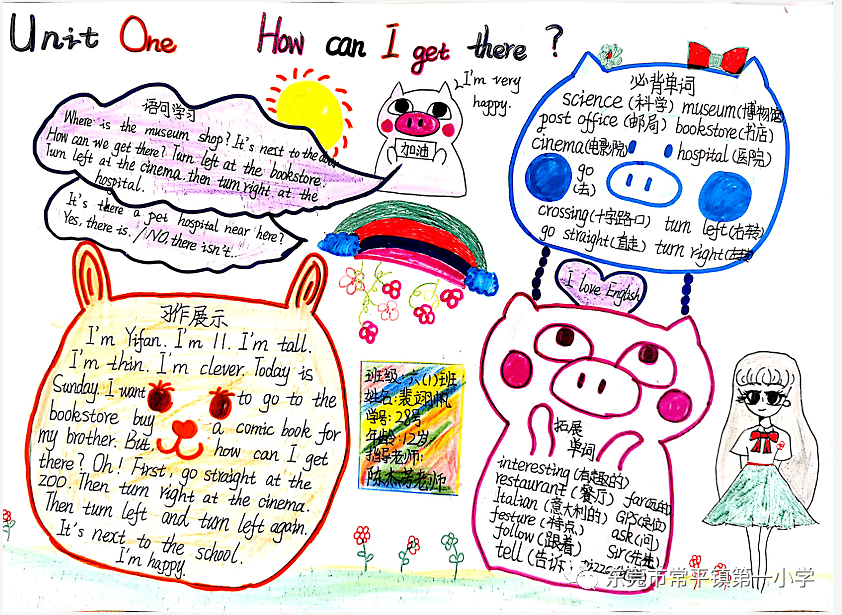 Unit One How can I get there ?
语句学习
Where is the museum shop? It's next to the door.
How can we get there? Turn left at the bookstore.
Turn left at the cinema. then turn right at the
hospital.
It's there a pet hospital near here?
Yes, there is. / NO, there isn't..
I'm very
happy.
加油
必背单词
science (科学) museum (博物馆)
post office (邮局) bookstore (书店)
cinema (电影院) hospital (医院)
go
(去)
crossing (十字路口) turn left
go straight (直走) turn right
I love English
习作展示
I'm Yifan. I'm 11. I'm tall.
I'm thin. I'm clever. Today is
Sunday. I want to go to the
bookstore buy a comic book for
my brother. But how can I get
there? Oh! First, go straight at the
zoo. Then turn right at the cinema.
Then turn left and turn left again.
It's next to the school.
I'm happy.
班级: 六(1)班
姓名: 裴翊帆
学号: 28号
年龄: 12岁
指导老师:
老师
拓展
单词
interesting (有趣的)
restaurant (餐厅) far
Italian (意大利的) GPS
festure (特点) ask (问)
follow (跟着) Sir (先生)
tell (告诉)
东莞市常平镇第一小学